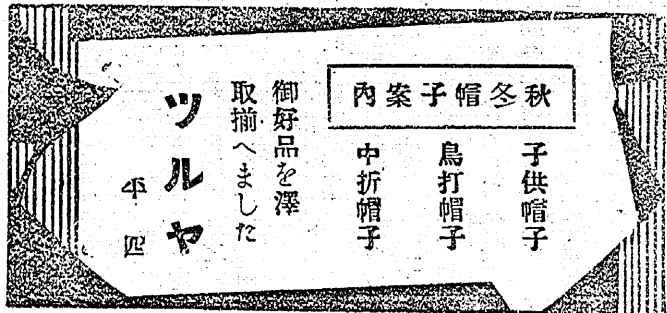 秋冬帽子案内
子供帽子
鳥打帽子
中折帽子
御好品を澤
取揃へました
ツルヤ
平四